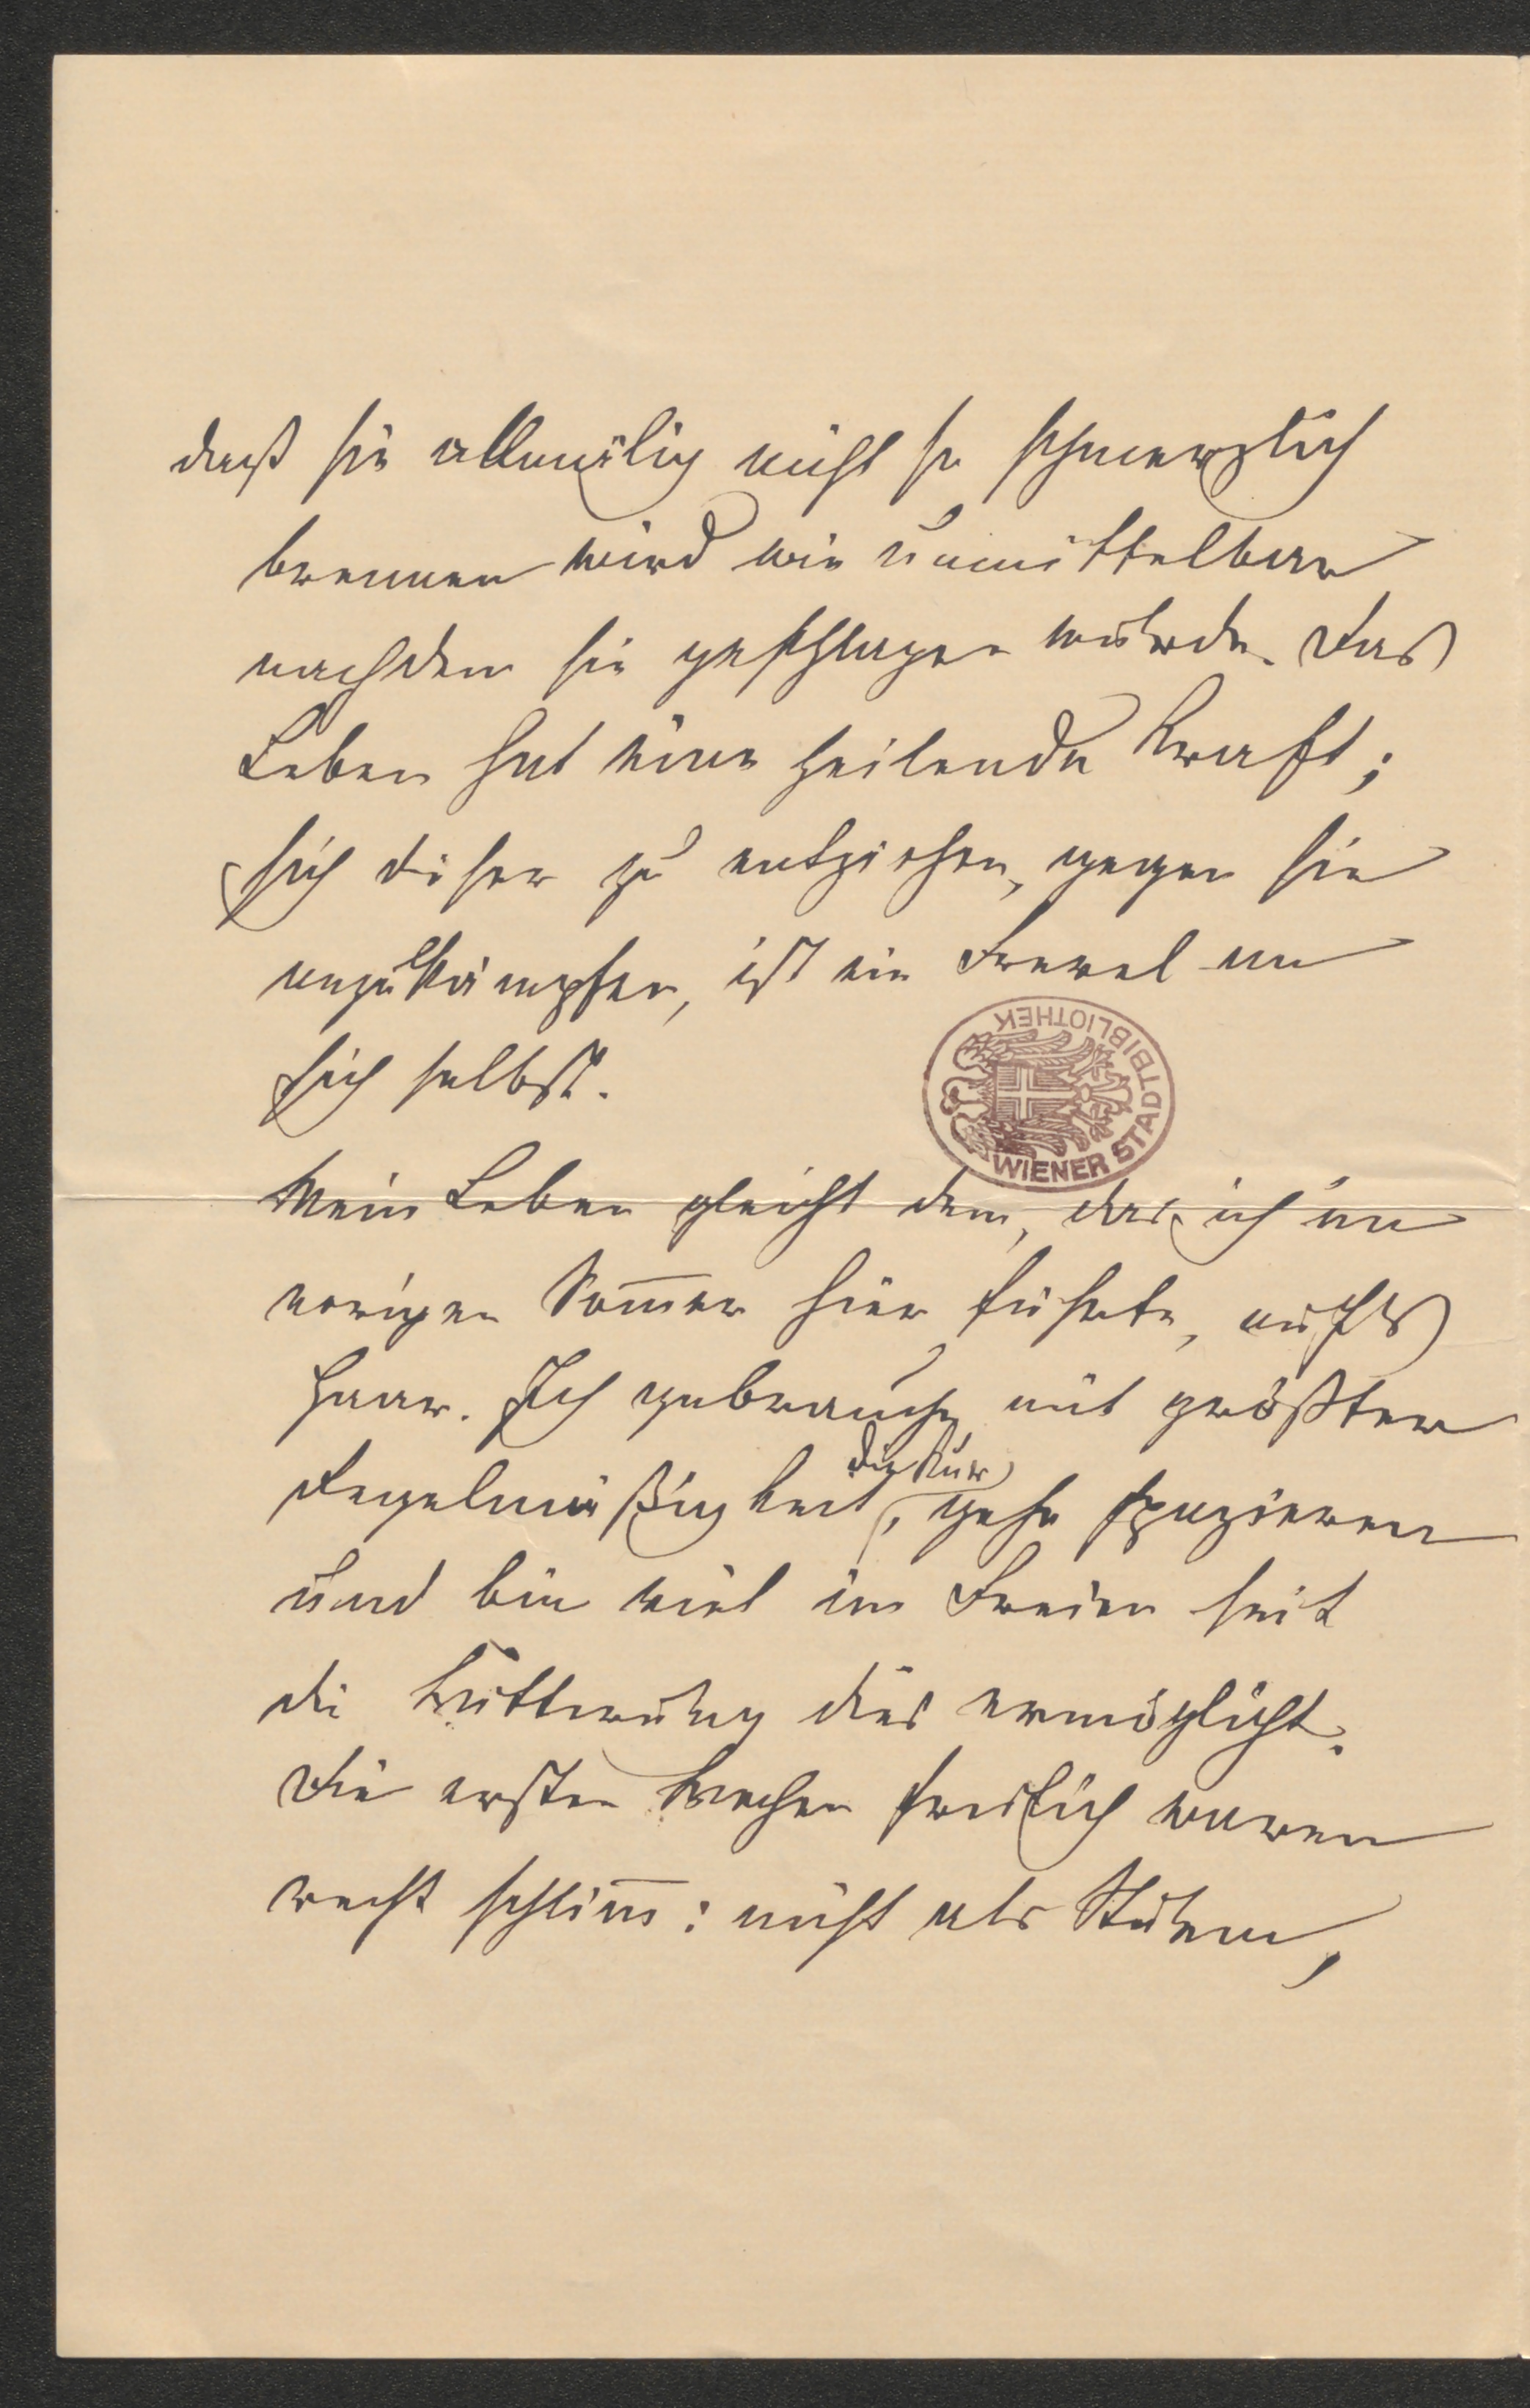 daß sie allmälig nicht so schmerzlich
brennen wird wie unmittelbar
nachdem sie geschlagen wurde. Das
Leben hat eine heilende Kraft;
sich dieser zu entziehen, gegen sie
anzukämpfen, ist ein Frevel an
sich selbst.
WIENER STADTBIBLIOTHEK
Mein Leben gleicht dem, das ich im
vorigen Som̅er hier führte, aufs
Haar. Ich gebrauche mit größter
die Kur
Regelmäßigkeit, gehe spazieren
und bin viel im Freien seit
die Witterung dies ermöglicht.
Die ersten Wochen freilich waren
recht schlim̅: nichts als Sturm,